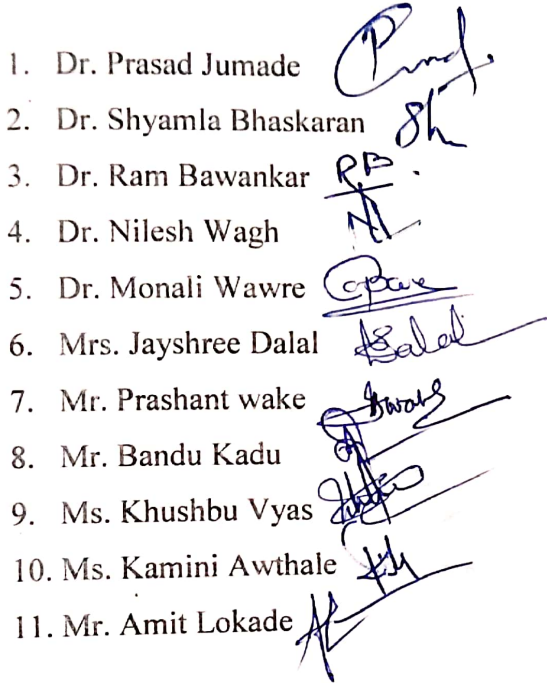 1. Dr. Prasad Jumade
2. Dr. Shyamla Bhaskaran Sh
3. Dr. Ram Bawankar RB.
4. Dr. Nilesh Wagh
5. Dr. Monali Wawre
6. Mrs. Jayshree Dalal
7. Mr. Prashant wake
8. Mr. Bandu Kadu
9. Ms. Khushbu Vyas
10. Ms. Kamini Awthale
11. Mr. Amit Lokade